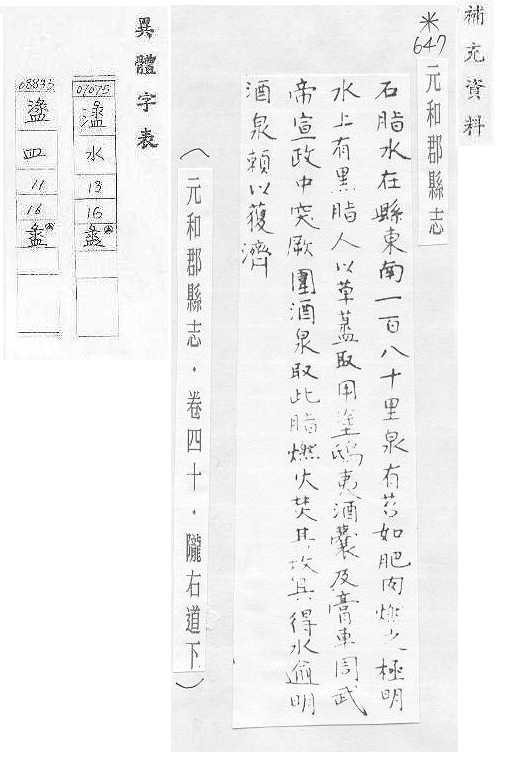 補充資料
*647
元和郡縣志
石脂水在縣東南一百八十里泉有苔如肥肉燃之極明
水上有黑脂人以草盝取用塗鴟夷酒囊及膏車周武
帝宣政中突厥圍酒泉取此脂燃火焚其攻具得水逾明
酒泉賴以獲濟
(元和郡縣志.卷四十.隴右道下)
異體字表
01075
水
13
16
08893
盝
皿
11
16